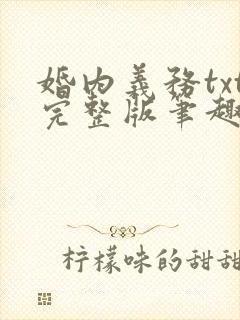 婚内義務txt
完整版筆趣
柠檬味的甜甜